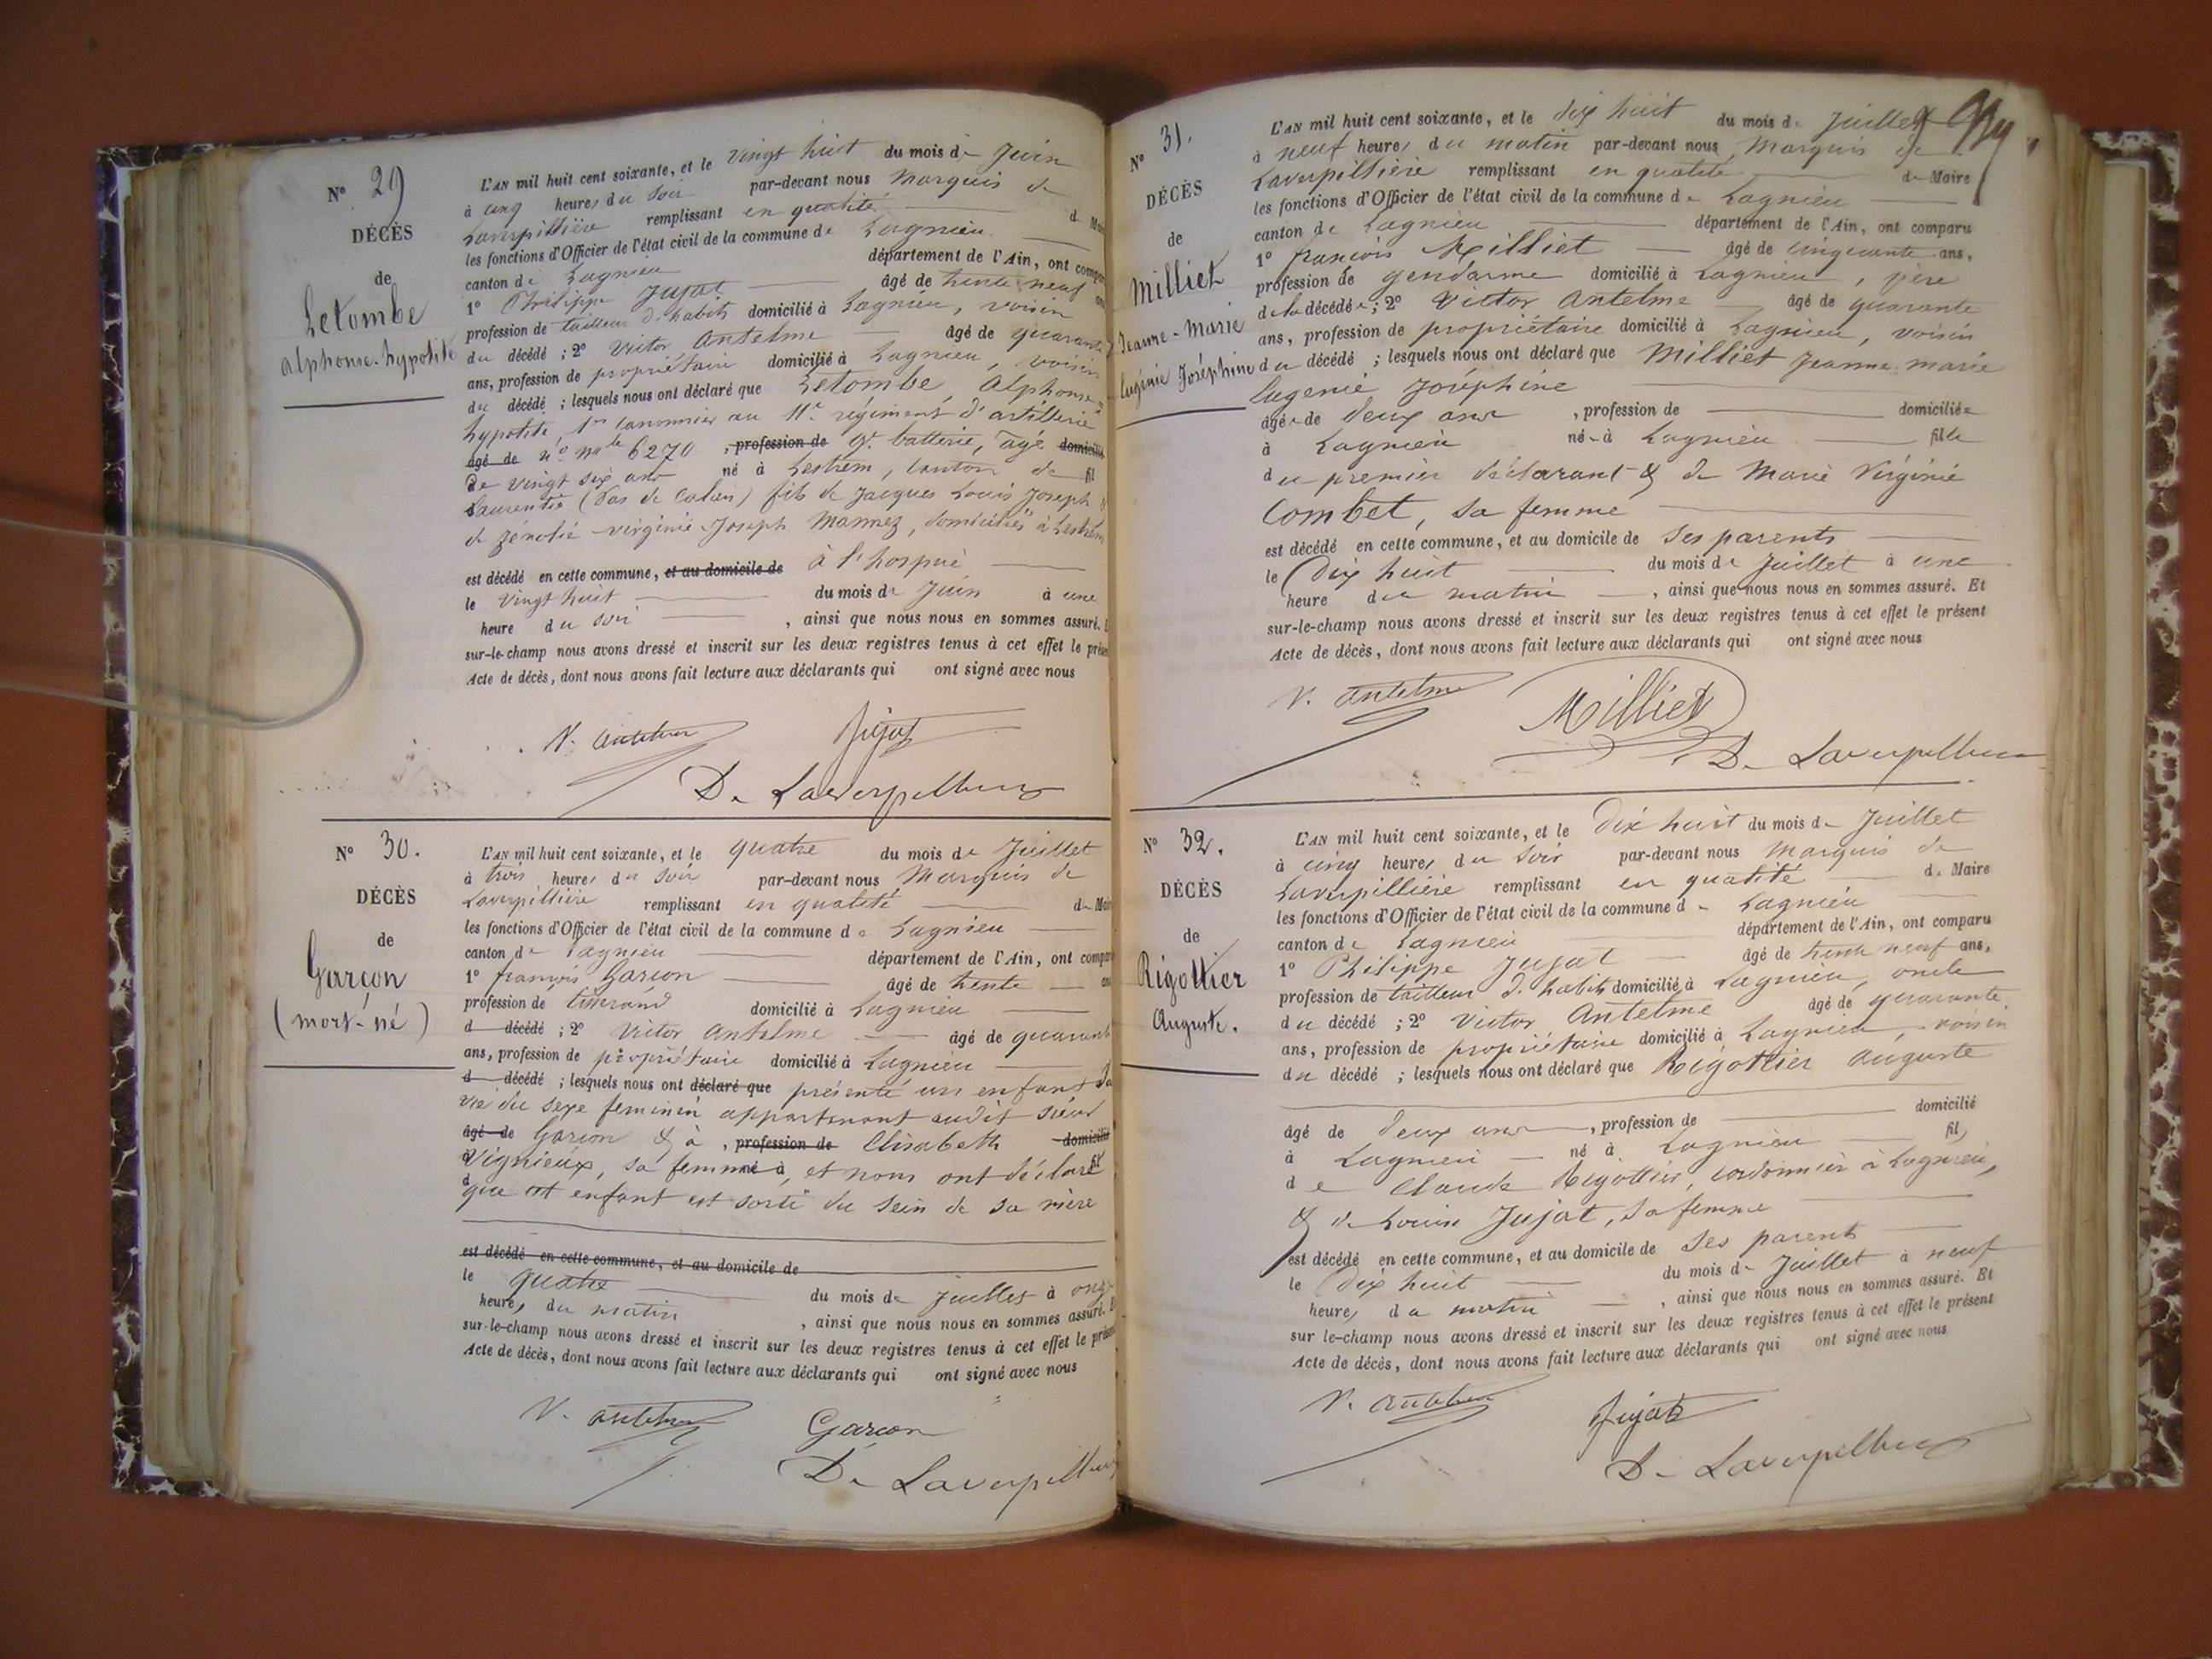 N° 29
DÉCÈS
de
Letombe
alphonse-hypolite
L'AN mil huit cent soixante, et le vingt huit du mois de Juin
à cinq heures du soir par-devant nous Marquis de
Laverpillière remplissant en qualité de Maire
les fonctions d'Officier de l'état civil de la commune de Lagnieu
canton de Lagnieu département de l'Ain, ont compar
1° Philippe Jujat âgé de trente neuf ans
profession de tailleur d'habits domicilié à Lagnieu, voisin
du décédé ; 2° Victor Antelme âgé de quarante
ans, profession de propriétaire domicilié à Lagnieu, voisin
du décédé ; lesquels nous ont déclaré que Letombe, Alphonse=
hypolite, 1er canonnier au 11e régiment d'artillerie
âgé de n° mle 6270 , profession de 9e batterie, âgé domicilié
de vingt six ans né à Lestrem, canton de fil
Laurentie (Pas de Calais) fils de Jacques Louis Joseph &
de Zénobie-virginie-Joseph Mannez, domiciliés à Lestrem
est décédé en cette commune, et au domicile de à l'hospice
le vingt huit du mois de Juin à une
heure du soir , ainsi que nous nous en sommes assuré. E
sur-le-champ nous avons dressé et inscrit sur les deux registres tenus à cet effet le prése
Acte de décès, dont nous avons fait lecture aux déclarants qui ont signé avec nous
V. Antelme Jujat
De Laverpillière
N° 30.
DÉCÈS
de
Garçon
(mort-né)
L'AN mil huit cent soixante, et le quatre du mois de Juillet
à trois heures du soir par-devant nous Marquis de
Laverpillière remplissant en qualité de Mair
les fonctions d'Officier de l'état civil de la commune de Lagnieu
canton de Lagnieu département de l'Ain, ont compar
1° françois Garcon âgé de trente ans
profession de tisserand domicilié à Lagnieu
d décédé ; 2° Victor Antelme âgé de quarant
ans, profession de propriétaire domicilié à Lagnieu
d décédé ; lesquels nous ont déclaré que présenté un enfant sa
vie du sexe feminin appartenant audit sieur
âgé de Garcon & à , profession de Elisabeth domicilié
à Vignieux, sa femme né à, et nous ont déclaré fil
d que cet enfant est sorti du sein de sa mère
est décédé en cette commune, et au domicile de
le quatre du mois de Juillet à onze
heures du matin , ainsi que nous nous en sommes assuré. E
sur-le-champ nous avons dressé et inscrit sur les deux registres tenus à cet effet le présen
Acte de décès, dont nous avons fait lecture aux déclarants qui ont signé avec nous
V. Antelme Garcon
De Laverpillière
N° 31.
DÉCÈS
de
Milliet
Jeanne-Marie
Eugénie Joséphine
L'AN mil huit cent soixante, et le dix huit du mois de Juillet
à neuf heures du matin par-devant nous Marquis de
Laverpillière remplissant en qualité de Maire
les fonctions d'Officier de l'état civil de la commune de Lagnieu
canton de Lagnieu département de l'Ain, ont comparu
1° françois Milliet âgé de cinquante ans,
profession de gendarme domicilié à Lagnieu, père
de la décédée ; 2° Victor Antelme âgé de quarante
ans, profession de propriétaire domicilié à Lagnieu, voisin
du décédé ; lesquels nous ont déclaré que Milliet Jeanne-marie
Eugenie Joséphine
âgée de deux ans , profession de domiciliée
à Lagnieu née à Lagnieu fille
du premier déclarant & de Marie Virginie
Combet, sa femme
est décédé en cette commune, et au domicile de ses parents
le dix huit du mois de Juillet à une
heure du matin , ainsi que nous nous en sommes assuré. Et
sur-le-champ nous avons dressé et inscrit sur les deux registres tenus à cet effet le présent
Acte de décès, dont nous avons fait lecture aux déclarants qui ont signé avec nous
V. Antelme Milliet
De Laverpillière
N° 32.
DÉCÈS
de
Rigottier
Auguste.
L'AN mil huit cent soixante, et le Dix huit du mois de Juillet
à cinq heures du soir par-devant nous Marquis de
Laverpillière remplissant en qualité de Maire
les fonctions d'Officier de l'état civil de la commune de Lagnieu
canton de Lagnieu département de l'Ain, ont comparu
1° Philippe Jujat âgé de trente neuf ans,
profession de tailleur d'habits domicilié à Lagnieu, oncle
du décédé ; 2° Victor Antelme âgé de quarante
ans, profession de propriétaire domicilié à Lagnieu, voisin
du décédé ; lesquels nous ont déclaré que Rigottier Auguste
âgé de deux ans , profession de domicilié
à Lagnieu né à Lagnieu fils
de Claude Rigottier, cordonnier à Lagnieu,
& de Louise Jujat, sa femme
est décédé en cette commune, et au domicile de ses parents
le Dix huit du mois de Juillet à neuf
heures du matin , ainsi que nous nous en sommes assuré. Et
sur le-champ nous avons dressé et inscrit sur les deux registres tenus à cet effet le présent
Acte de décès, dont nous avons fait lecture aux déclarants qui ont signé avec nous
V. Antelme Jujat
De Laverpillière